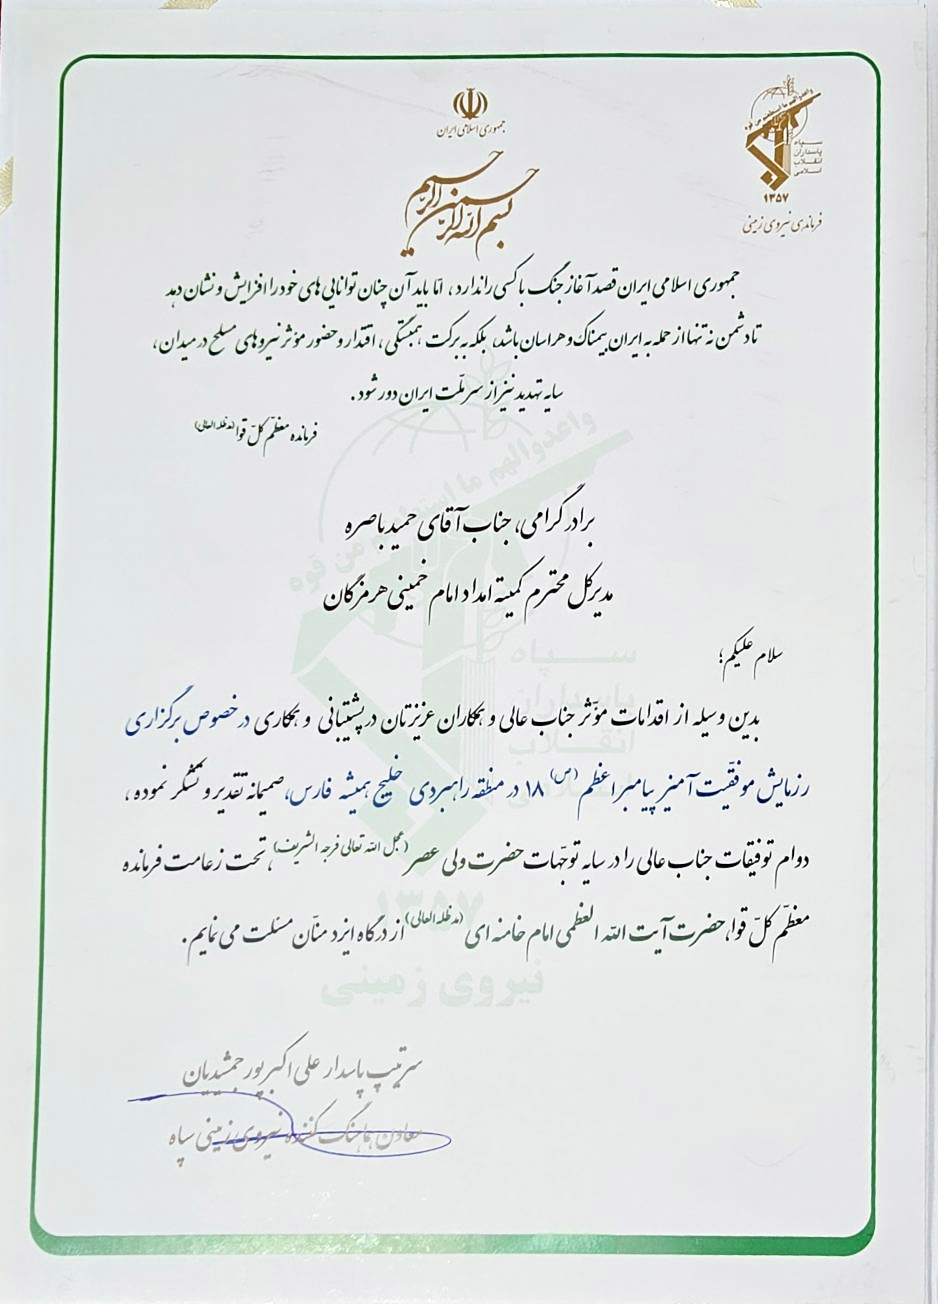 جمهوری اسلامی ایران
بسم الله الرحمن الرحیم
واعدوالهم ما استطعتم من قوة
سپاه
پاسداران
انقلاب
اسلامی
۱۳۵۷
فرماندهی نیروی زمینی
جمهوری اسلامی ایران قصد آغاز جنگ با کسی را ندارد، امّا باید آن چنان توانایی های خود را افزایش و نشان دهد
تا دشمن نه تنها از حمله به ایران بیمناک و هراسان باشد، بلکه به برکت همبستگی، اقتدار و حضور مؤثر نیروهای مسلح در میدان،
سایه تهدید نیز از سر ملّت ایران دور شود.
فرمانده معظّم کلّ قوا (مدظله العالی)
برادر گرامی، جناب آقای حمید باصره
مدیرکل محترم کمیته امداد امام خمینی هرمزگان
سلام علیکم؛
بدین وسیله از اقدامات مؤثر جناب عالی و همکاران عزیزتان در پشتیبانی و همکاری در خصوص برگزاری
رزمایش موفقیت آمیز پیامبر اعظم (ص) ۱۸ در منطقه راهبردی خلیج همیشه فارس، صمیمانه تقدیر و تشکر نموده،
دوام توفیقات جناب عالی را در سایه توجّهات حضرت ولی عصر (عجل الله تعالی فرجه الشریف)، تحت زعامت فرمانده
معظّم کلّ قوا، حضرت آیت الله العظمی امام خامنه ای (مدظله العالی) از درگاه ایزد منّان مسئلت می نمایم.
واعدوالهم ما استطعتم من قوة
سپاه
پاسداران
انقلاب
اسلامی
۱۳۵۷
نیروی زمینی
سرتیپ پاسدار علی اکبر پور جمشیدیان
معاون هماهنگ کننده نیروی زمینی سپاه